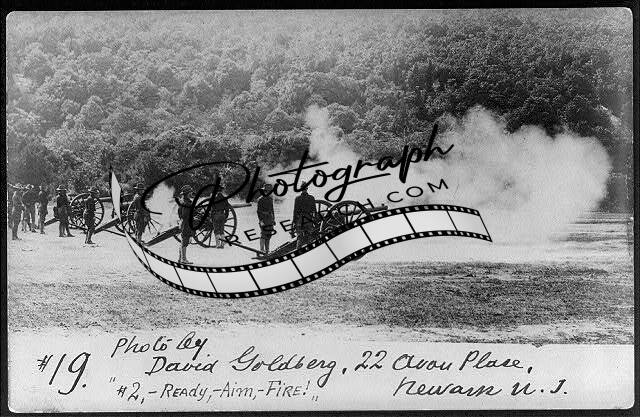 Photograph
RESEARCH.COM
#19. Photo by
David Goldberg, 22 Avon Place,
"#2,-Ready,-Aim,-Fire!" Newark N.J.